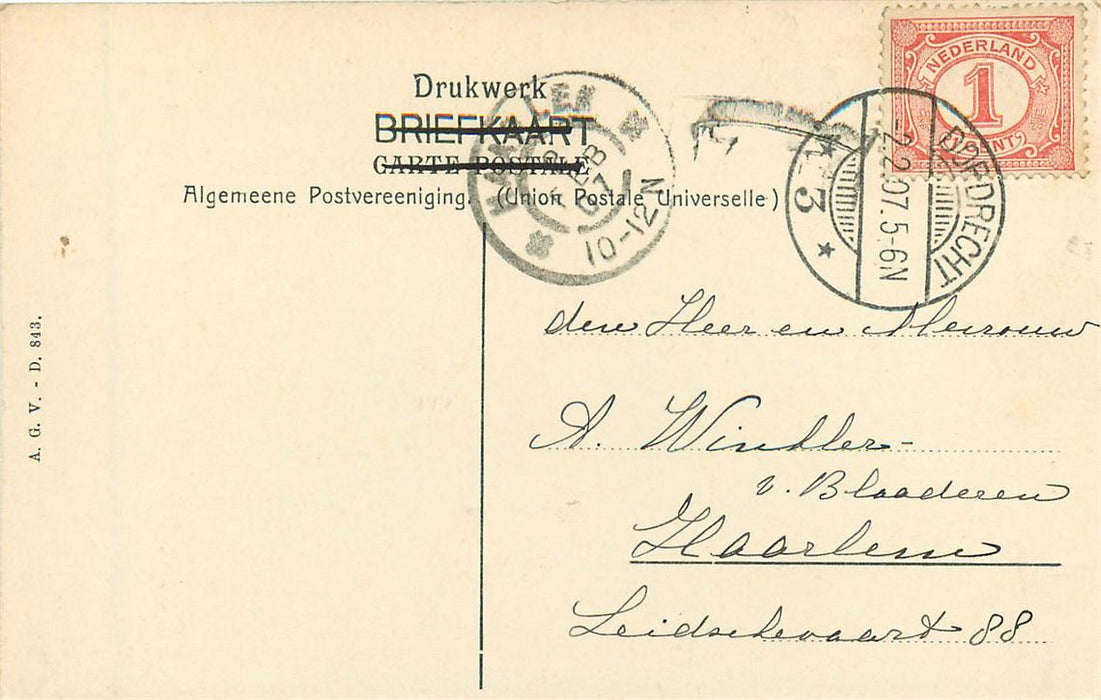 Drukwerk
BRIEFKAART
CARTE POSTALE
Algemeene Postvereeniging. (Union Postale Universelle)
NEDERLAND
1
CENT
DORDRECHT
-2.2.07.5-6N
3
HAARLEM
FEB
07
10-12N
den Heer en Mevrouw
A. Winkler-
v. Blaaderen
Haarlem
Leidschevaart 88
A. G. V. - D. 843.